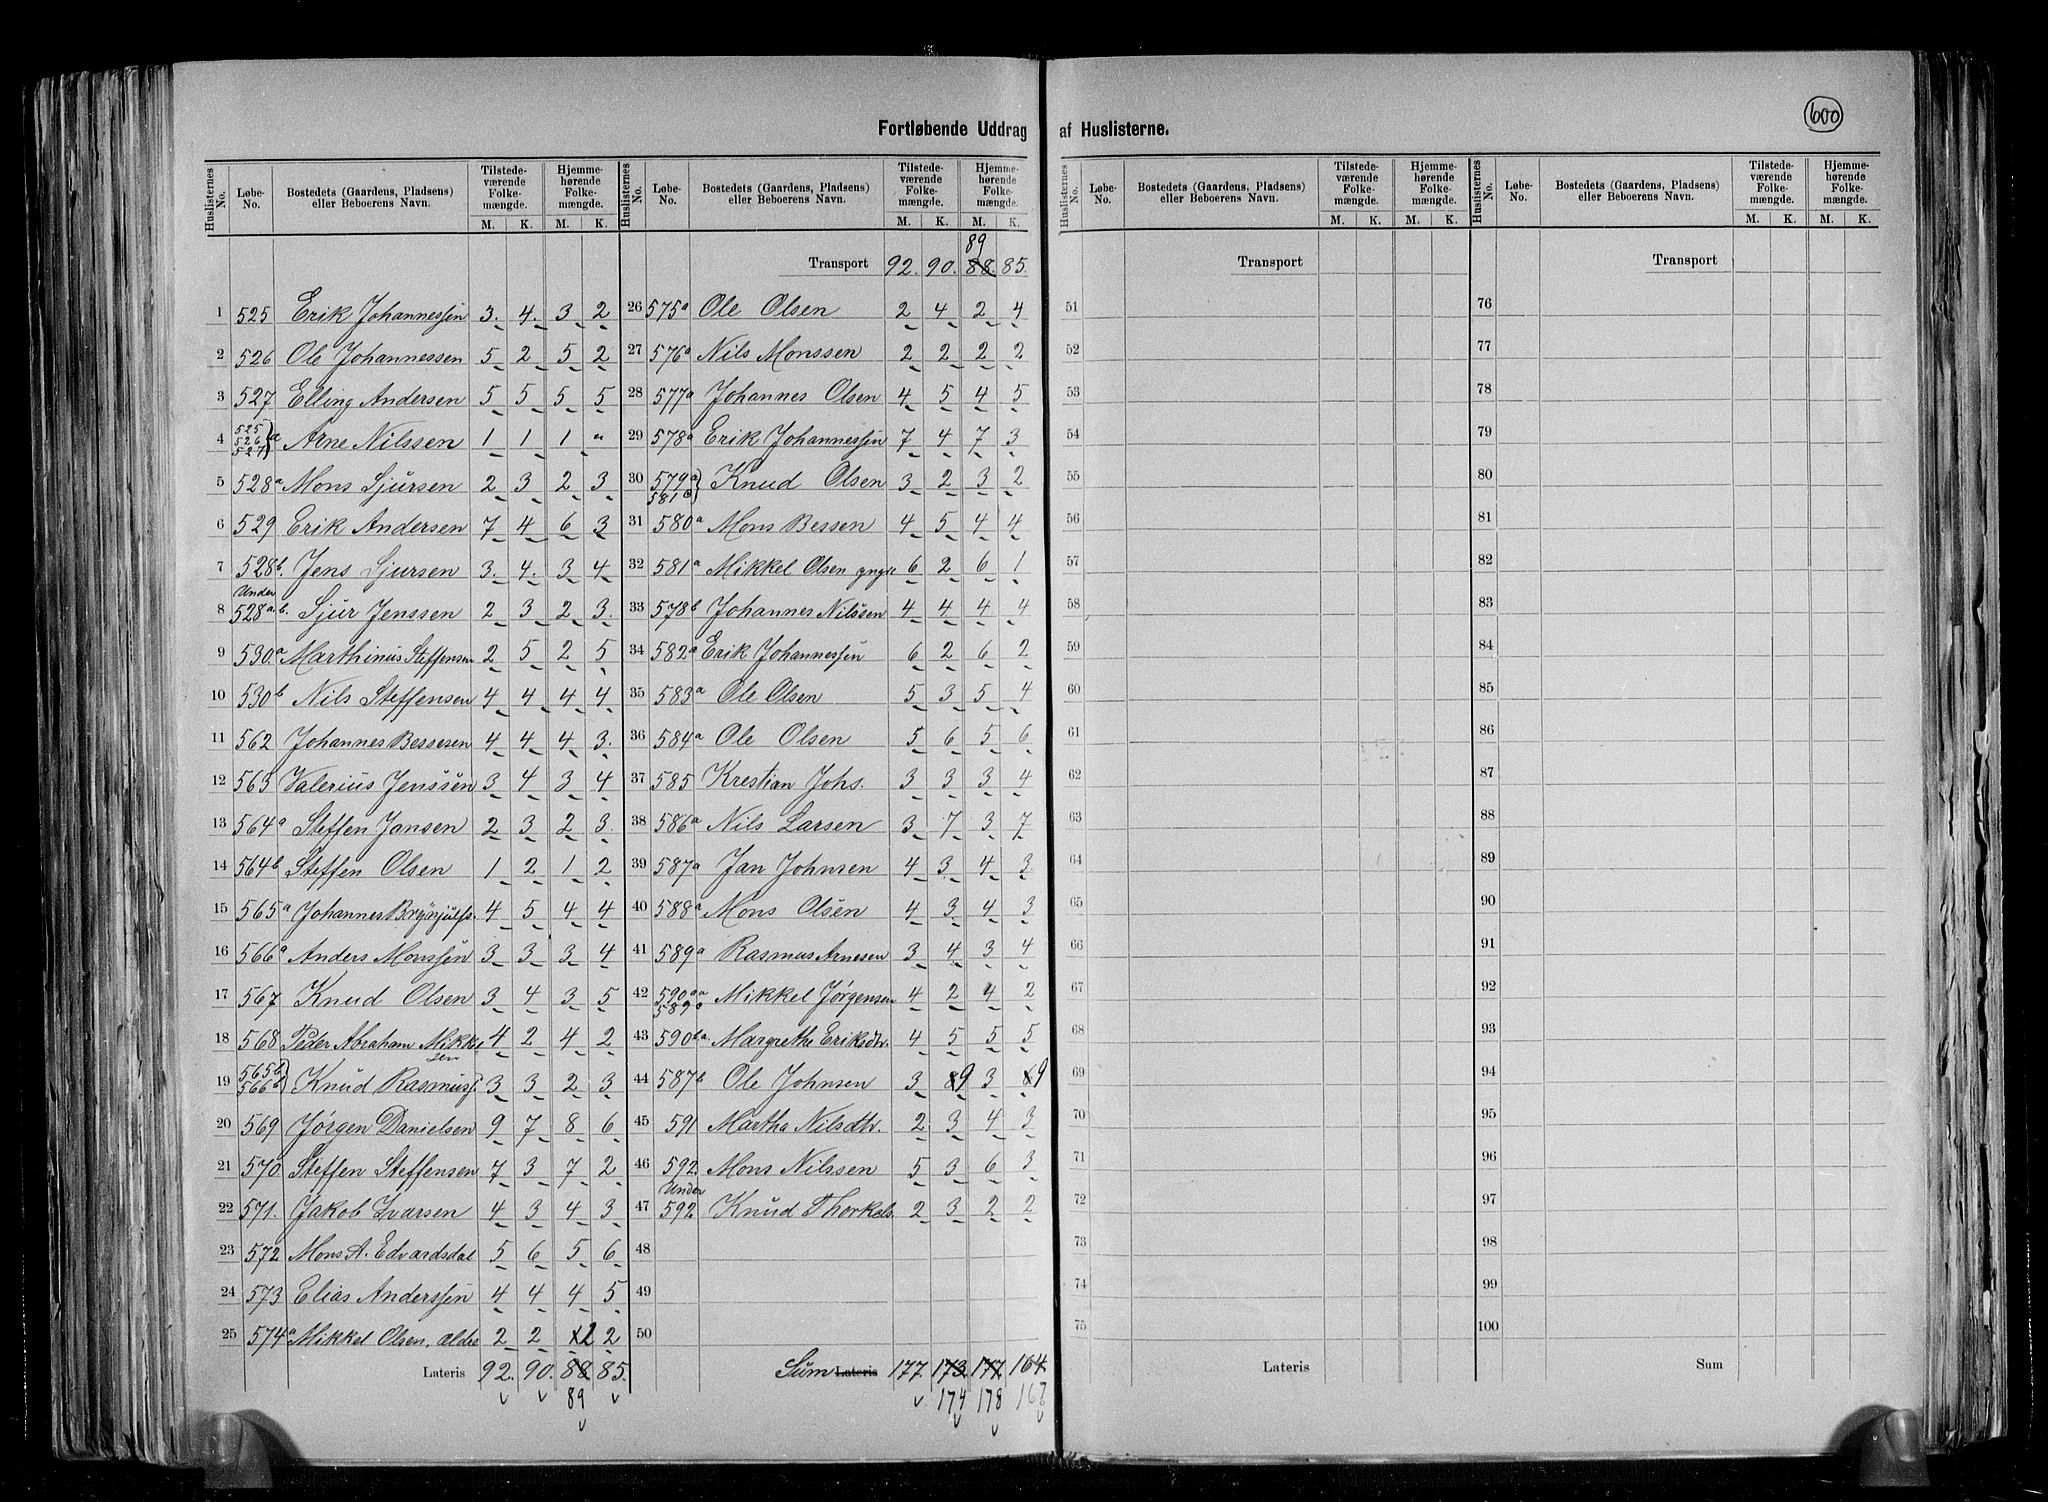 600
Fortløbende Uddrag af Huslisterne.
Huslisternes No. | Løbe-No. | Bostedets (Gaardens, Pladsens) eller Beboerens Navn. | Tilstedeværende Folkemængde. M. K. | Hjemmehørende Folkemængde. M. K.
1 525 Erik Johannessen 3. 4. 3 2
2 526 Ole Johannessen 5 2 5 2
3 527 Elling Andersen 5 5 5 5
4 525 526 527 a Arne Nilssen 1 1 1 "
5 528a Mons Sjursen 2 3 2 3
6 529 Erik Andersen 7 4 6 3
7 528b. Jens Sjursen 3. 4. 3 4
8 Under 528a.b. Sjur Jenssen 2 3 2 3.
9 530.a Marthinus Steffensen 2 5 2 5
10 530b Nils Steffensen 4 4 4 4
11 562 Johannes Bessesen 4 4 4 3.
12 563 Valerius Jenssen 3 4 3 4
13 564a Steffen Jansen 2 3 2 3.
14 564b Steffen Olsen 1 2 1 2
15 565a Johannes Brynjulfs. 4 5 4 4
16 566a Anders Monssen 3 3 3 4
17 567 Knud Olsen 3 4 3 5
18 568 Peder Abraham Mikkelsen 4 2 4 2
19 565b 566b Knud Rasmuss. 3 3 2 3
20 569 Jørgen Danielsen 9 7 8 6
21 570. Steffen Steffensen 7 3 7 2
22 571. Jakob Ivarsen 4 3 4 3
23 572 Mons A. Edvardsdal 5 6 5 6
24 573 Elias Anderssen 4 4 4 5
25 574a Mikkel Olsen, ældre 2 2 2 2
Lateris 92. 90. 88 85.
89
Huslisternes No. | Løbe-No. | Bostedets (Gaardens, Pladsens) eller Beboerens Navn. | Tilstedeværende Folkemængde. M. K. | Hjemmehørende Folkemængde. M. K.
89
Transport 92. 90. 88. 85.
26 575a Ole Olsen 2 4 2 4
27 576a Nils Monssen 2 2 2 2
28 577a Johannes Olsen 4 5 4 5
29 578a Erik Johannessen 7 4 7 3
30 579a 581c Knud Olsen 3 2 3 2
31 580a Mons Bessen 4 5 4 4
32 581a Mikkel Olsen yngre 6 2 6 1
33 578b Johannes Nilssen 4 4 4 4
34 582a Erik Johannessen 6 2 6 2
35 583a Ole Olsen 5 3 5 4
36 584a Ole Olsen 5 6 5 6
37 585 Krestian Johs. 3 3 3 4
38 586a Nils Larsen 3 7 3 7
39 587a Jan Johnsen 4 3. 4 3.
40 588a Mons Olsen 4 3. 4 3
41 589a Rasmus Arnesen 3 4 3 4
42 590aa 589 Mikkel Jørgensen 4 2 4 2
43 590b.a. Margrethe Eriksdtr. 4 5 5 5
44 587b Ole Johnsen 3 89 3 9
45 591 Martha Nilsdtr. 2 3 4 3
46 592. Mons Nilssen 5 3 6 3
47 Under 592. Knud Thorkels. 2 3 2 2
48
49
50
Sum Lateris 177. 173. 177. 164
174 178 167
Huslisternes No. | Løbe-No. | Bostedets (Gaardens, Pladsens) eller Beboerens Navn. | Tilstedeværende Folkemængde. M. K. | Hjemmehørende Folkemængde. M. K.
Transport
51
52
53
54
55
56
57
58
59
60
61
62
63
64
65
66
67
68
69
70
71
72
73
74
75
Lateris
Huslisternes No. | Løbe-No. | Bostedets (Gaardens, Pladsens) eller Beboerens Navn. | Tilstedeværende Folkemængde. M. K. | Hjemmehørende Folkemængde. M. K.
Transport
76
77
78
79
80
81
82
83
84
85
86
87
88
89
90
91
92
93
94
95
96
97
98
99
100
Sum